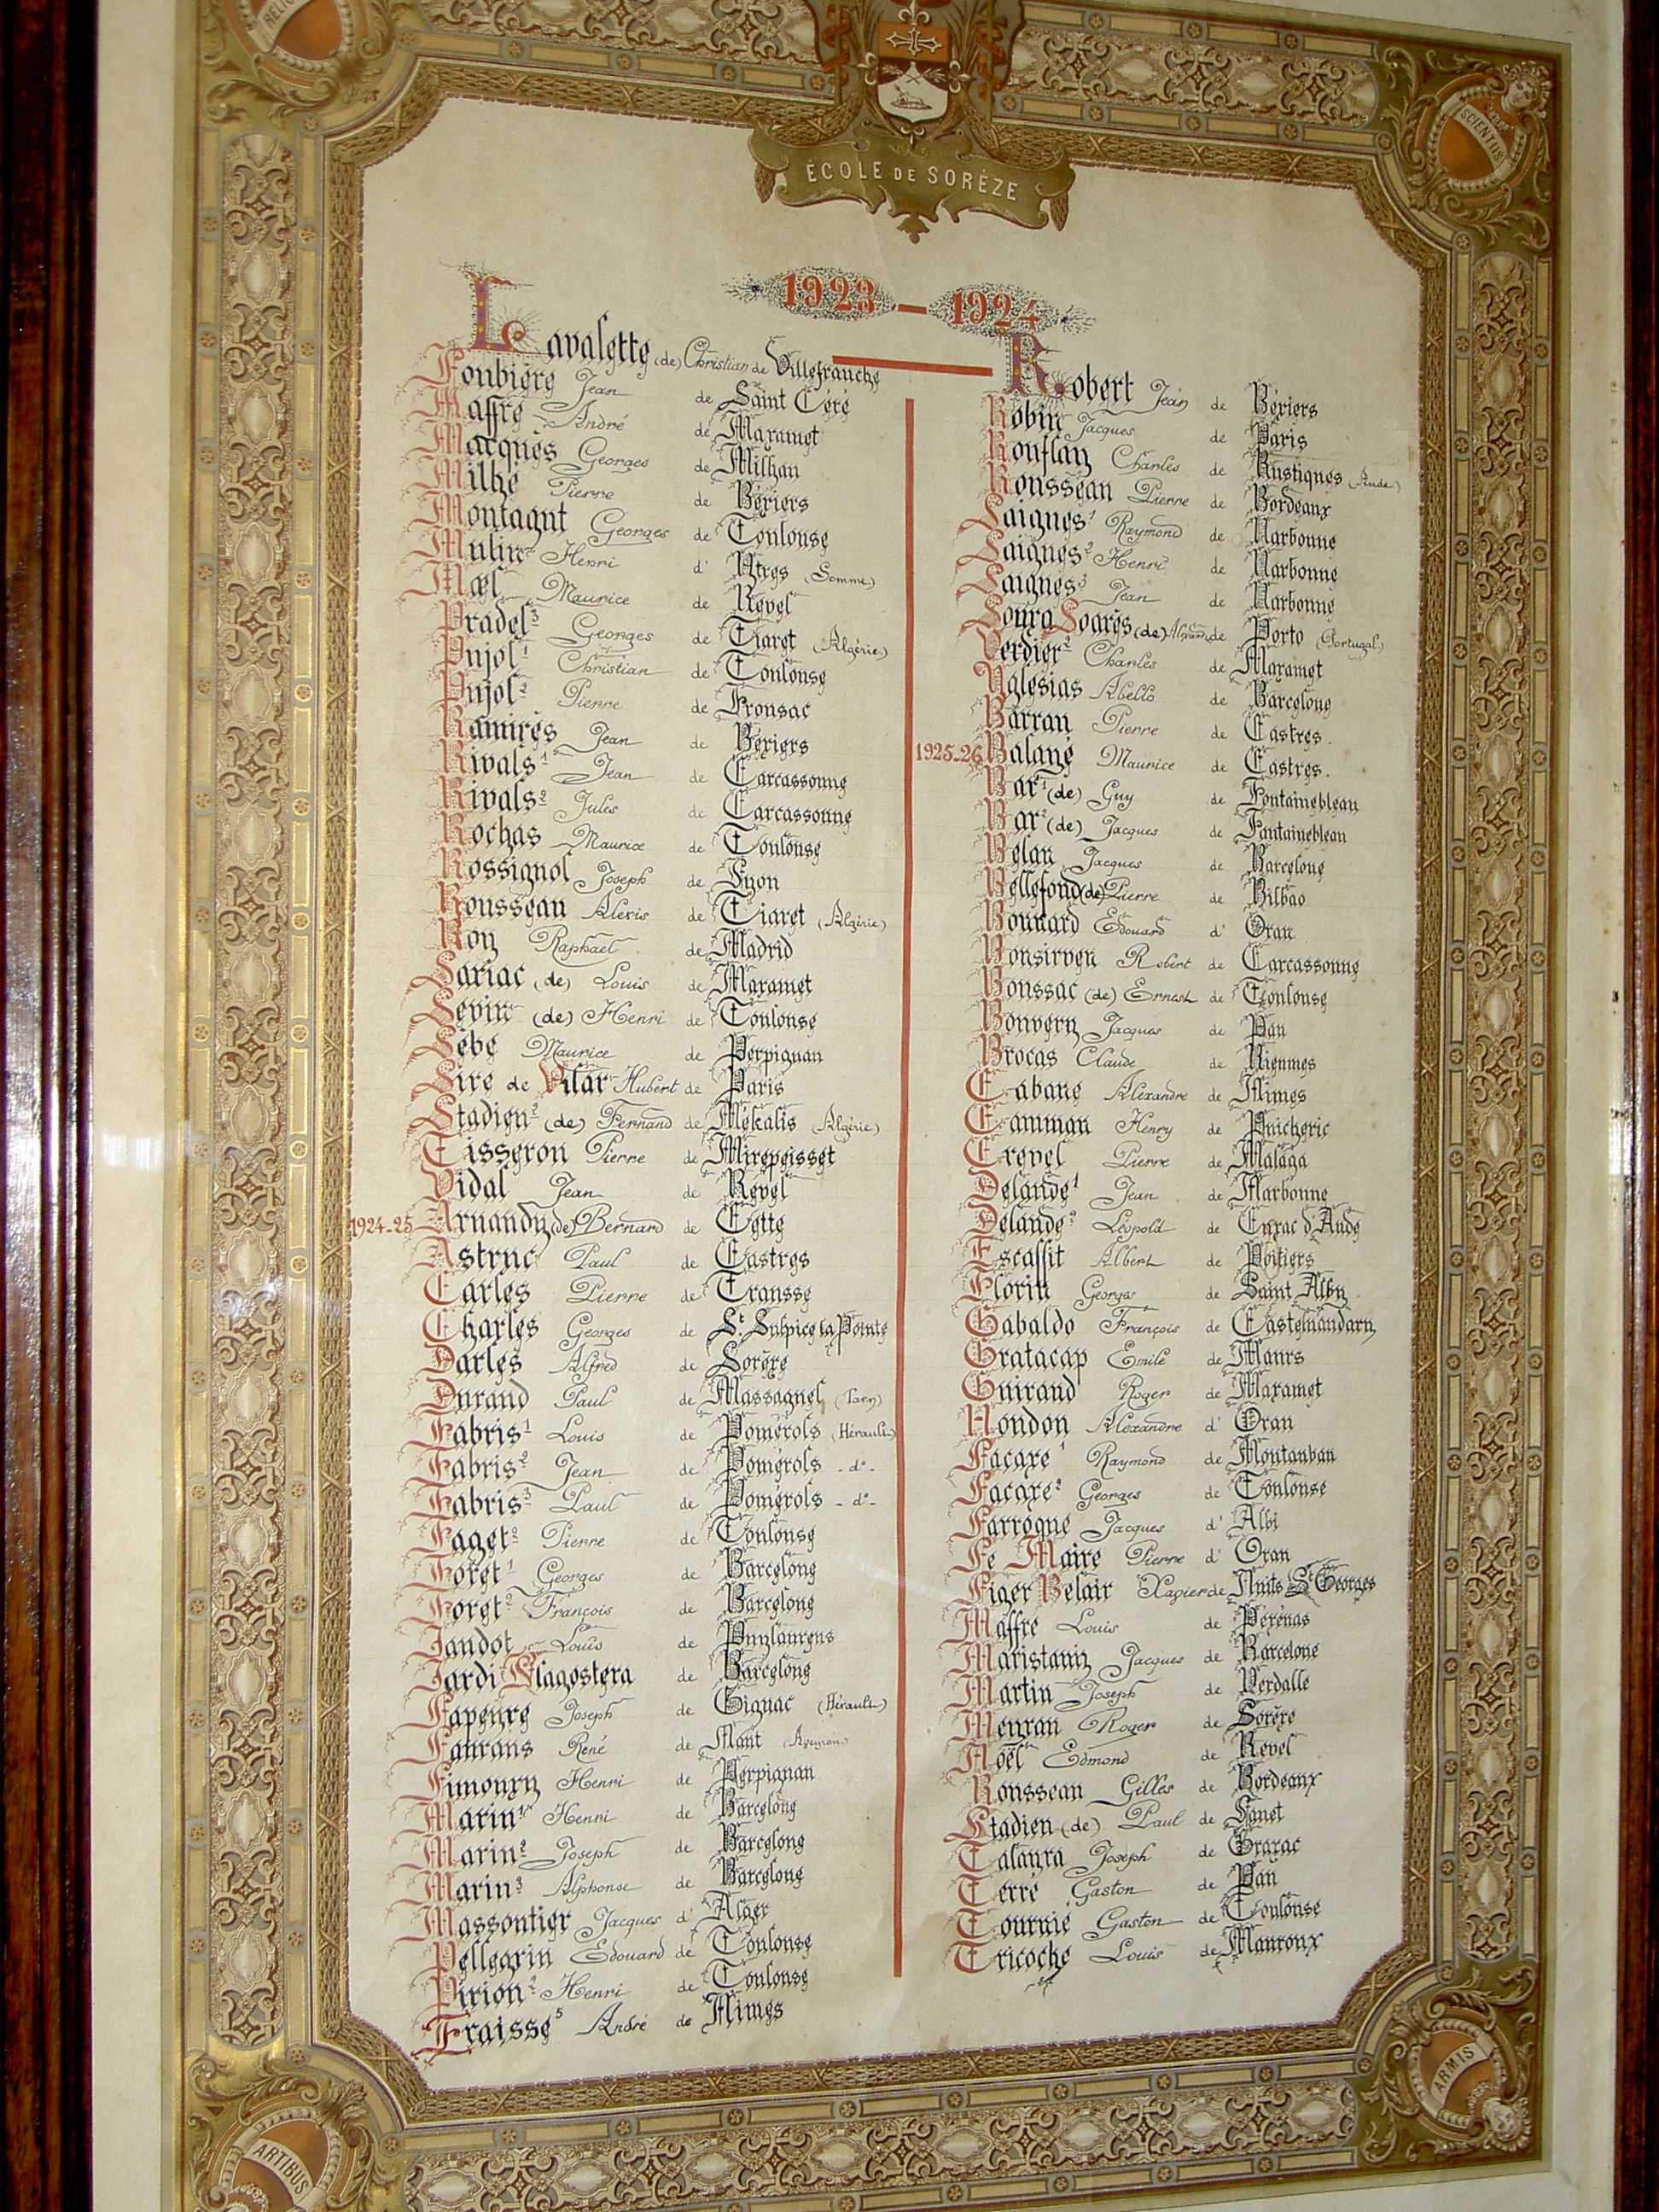 SCIENTIIS
ÉCOLE DE SORÈZE
1923 — 1924
Lavalette (de) Christian de Villefranche
Loubière Jean de Saint Céré
Maffre André de Mazamet
Macquès Georges de Milhau
Milhé Pierre de Béziers
Montagut Georges de Toulouse
Mulin Henri d' Ytres (Somme)
Mael Maurice de Revel
Pradel³ Georges de Tiaret (Algérie)
Pujol¹ Christian de Toulouse
Pujol² Pierre de Fronsac
Ramirès Jean de Béziers
Rivals¹ Jean de Carcassonne
Rivals² Jules de Carcassonne
Rochas Maurice de Toulouse
Rossignol Joseph de Lyon
Rousseau Alexis de Tiaret (Algérie)
Roy Raphael de Madrid
Sariac (de) Louis de Mazamet
Sevin (de) Henri de Toulouse
Sèbe Maurice de Perpignan
Sire de Vilar Hubert de Paris
Stadieu² (de) Fernand de Mékalis (Algérie)
Tisseron Pierre de Mirepeisset
Vidal Jean de Revel
1924-25 Arnaudy (de) Bernard de Cette
Astruc Paul de Castres
Carles Pierre de Transse
Charles Georges de St Sulpice la Pointe
Darles Alfred de Sorèze
Durand Paul de Massaguel (Tarn)
Fabris¹ Louis de Pomérols (Hérault)
Fabris² Jean de Pomérols - d° -
Fabris³ Paul de Pomérols - d° -
Faget² Pierre de Toulouse
Foret¹ Georges de Barcelone
Foret² François de Barcelone
Jandot Louis de Puylaurens
Jardi Llagostera de Barcelone
Lapeyre Joseph de Gignac (Hérault)
Laurans René de Nant (Aveyron)
Limouzy Henri de Perpignan
Marin¹ Henri de Barcelone
Marin² Joseph de Barcelone
Marin³ Alphonse de Barcelone
Massoutier Jacques d' Alger
Pellegrin Edouard de Toulouse
Pirion² Henri de Toulouse
Fraisse⁵ André de Nimes
Robert Jean de Béziers
Robin Jacques de Paris
Rouflay Charles de Rustiques (Aude)
Rousseau Pierre de Bordeaux
Saignes¹ Raymond de Narbonne
Saignes² Henri de Narbonne
Saignes³ Jean de Narbonne
Soura Soarès (de) de Porto (Portugal)
Verdier² Charles de Mazamet
Yglesias Abello de Barcelone
Barran Pierre de Castres.
1925-26 Balayé Maurice de Castres.
Bar¹ (de) Guy de Fontainebleau
Bar² (de) Jacques de Fontainebleau
Bélan Jacques de Barcelone
Bellefond (de) Pierre de Bilbao
Bonnard Edouard d' Oran
Bonsirven Robert de Carcassonne
Boussac (de) Ernest de Toulouse
Bouvery Jacques de Pau
Brocas Claude de Rieumes
Cabane Alexandre de Nimes
Camman Henry de Puicheric
Crevel Pierre de Malaga
Delande¹ Jean de Narbonne
Delande² Léopold de Cuxac d'Aude
Escaffit Albert de Poitiers
Florin Georges de Saint Alby
Gabaldo François de Castelnaudary
Gratacap Emile de Maurs
Guiraud Roger de Mazamet
Houdou Alexandre d' Oran
Lacaze¹ Raymond de Montauban
Lacaze² Georges de Toulouse
Larroque Jacques d' Albi
Le Maire Pierre d' Oran
Liger Belair Xavier de Nuits St Georges
Maffre Louis de Pézenas
Maristany Jacques de Barcelone
Martin Joseph de Verdalle
Meyran Roger de Sorèze
Noël Edmond de Revel
Rousseau Gilles de Bordeaux
Stadieu (de) Paul de Sanet
Calanra Joseph de Grazac
Terré Gaston de Pau
Tournié Gaston de Toulouse
Tricoche Louis de Mauroux
ARTIBUS
ARMIS